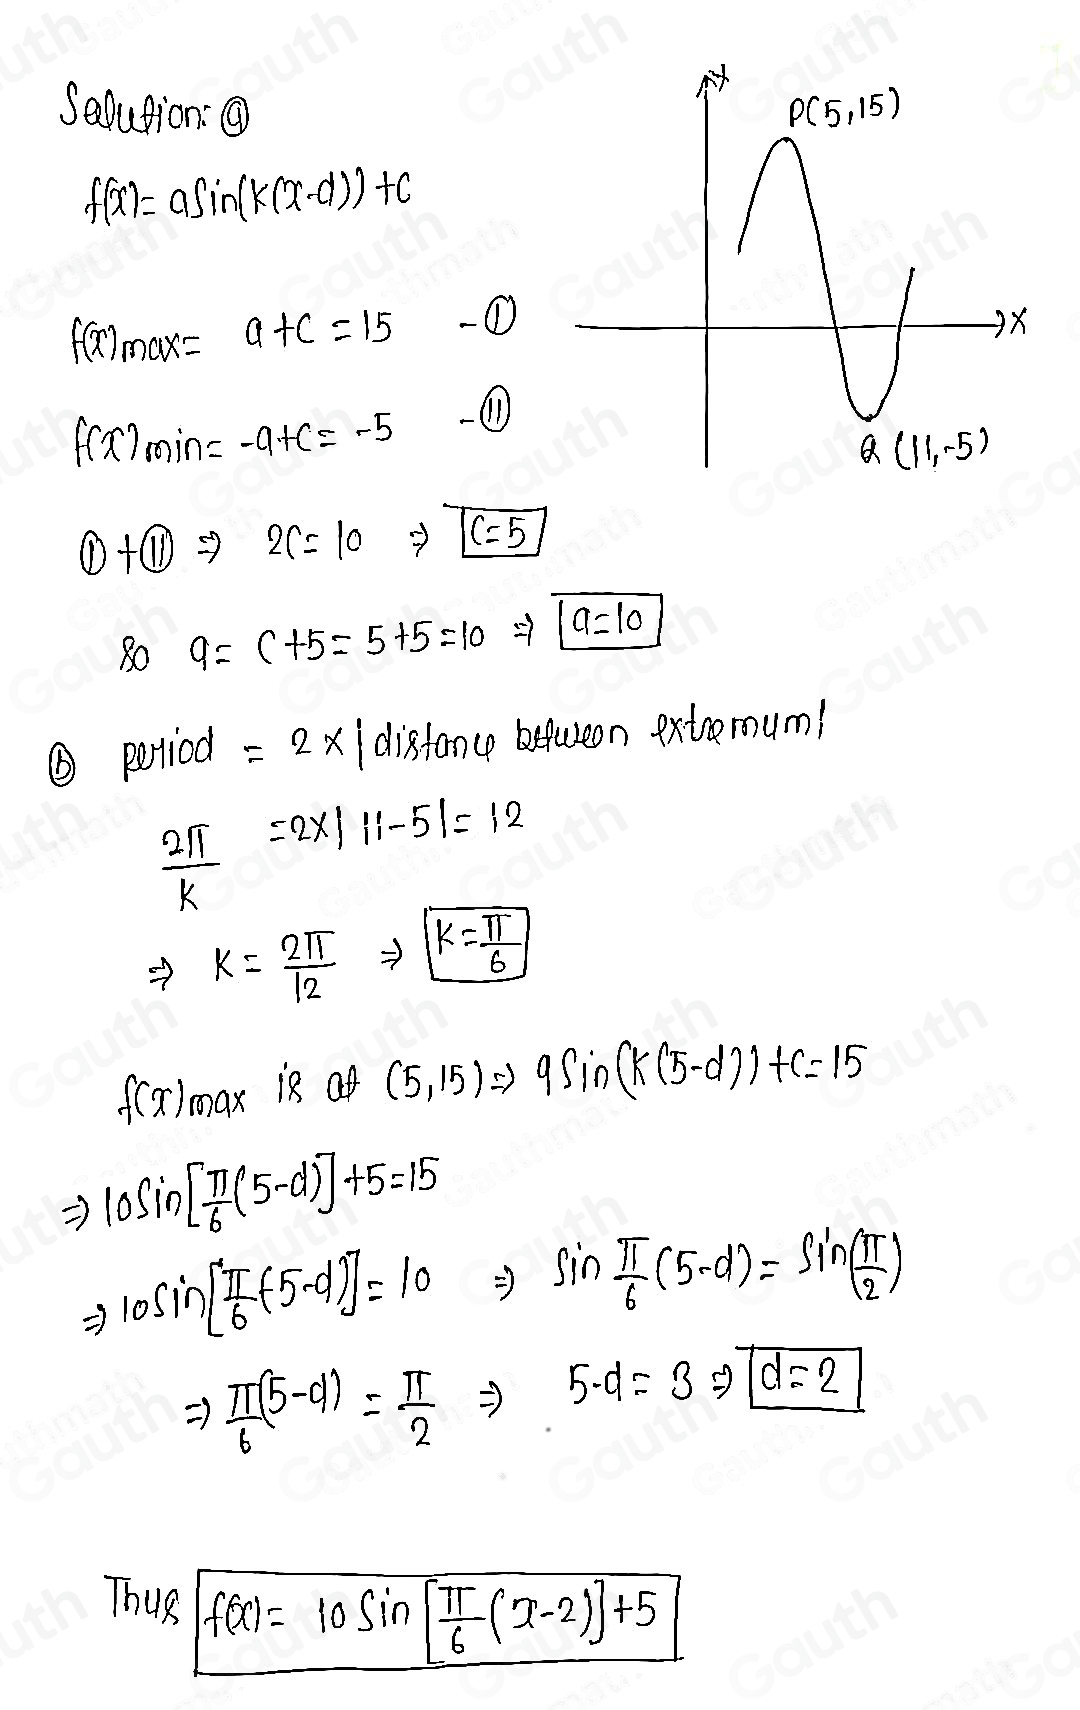 Solution: ⓐ
f(x) = a sin(k(x-d)) + c
y
P(5,15)
x
Q (11,-5)
f(x)max = a + c = 15 - Ⓘ
f(x)min = -a+c = -5 - Ⓘ Ⓘ
Ⓘ + ⓘⓘ ⇒ 2c = 10 ⇒ c=5
so a = c+5 = 5+5 = 10 ⇒ a=10
ⓑ period = 2 × |distance between extremum|
2π/k = 2×|11-5| = 12
⇒ k = 2π/12 ⇒ k = π/6
f(x)max is at (5,15) ⇒ a sin(k(5-d)) + c = 15
⇒ 10 sin[π/6(5-d)] + 5 = 15
⇒ 10 sin[π/6(5-d)] = 10 ⇒ sin π/6 (5-d) = sin(π/2)
⇒ π/6(5-d) = π/2 ⇒ 5-d = 3 ⇒ d=2
Thus f(x) = 10 sin [π/6 (x-2)] + 5